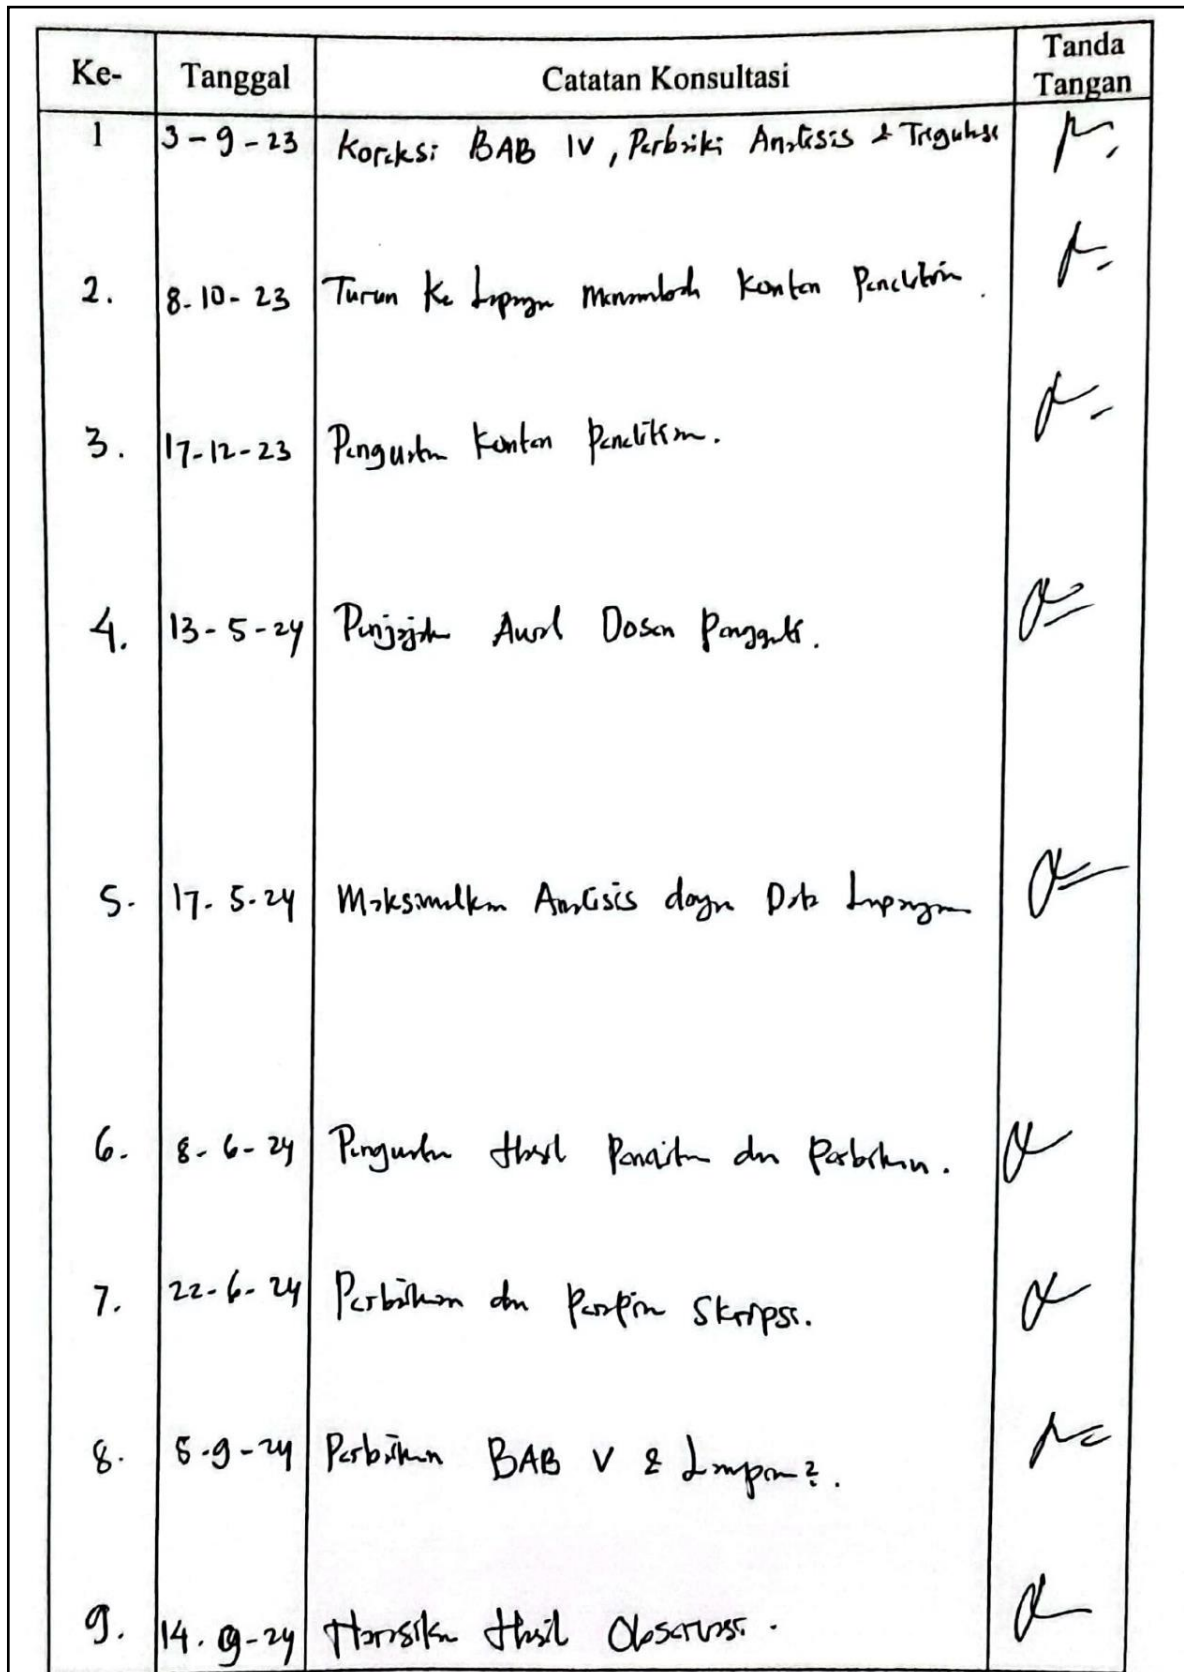 Ke- Tanggal Catatan Konsultasi Tanda Tangan
1 3-9-23 Koreksi BAB IV, Perbaiki Analisis &
2. 8-10-23 Turun Ke Lapangan Menambah Konten Penelitian.
3. 17-12-23 Penguatan Konten Penelitian.
4. 13-5-24 Penjajakan Awal Dosen Pengganti.
5. 17-5-24 Maksimalkan Analisis dengan Data Lapangan
6. 8-6-24 Penguatan Hasil Penelitian dan Perbaikan.
7. 22-6-24 Perbaikan dan Skripsi.
8. 5-9-24 Perbaikan BAB V & Lampiran2.
9. 14-9-24 Hasil Observasi.